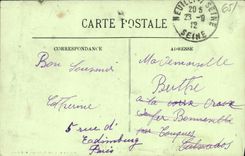 CARTE POSTALE
CORRESPONDANCE
ADRESSE
NEUILLY S SEINE
20 5
23 - 9
12
SEINE
651
Bon Souvenir
Catherine
5 rue d'
Edimbourg
Paris
Mademoiselle
Berthe
à la
croix
par
Calvados